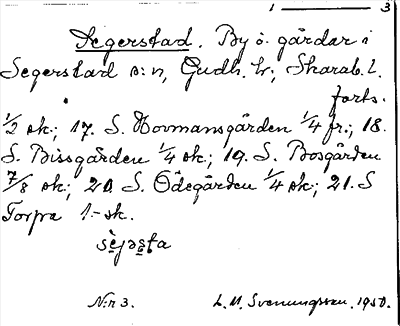 1 — 3
Segerstad. By o. gårdar i
Segerstad s:n, Gudh. hr; Skarab. l.
forts.
1/2 sk.; 17. S. Hovmansgården 1/4 fr.; 18.
S. Bissgården 1/4 sk.; 19. S. Bosgården
7/8 sk.; 20 S. Ödegården 1/4 sk.; 21. S
Torpa 1.- sk.
sèjəsta
N:r 3.
L. M. Svenungsson. 1950.